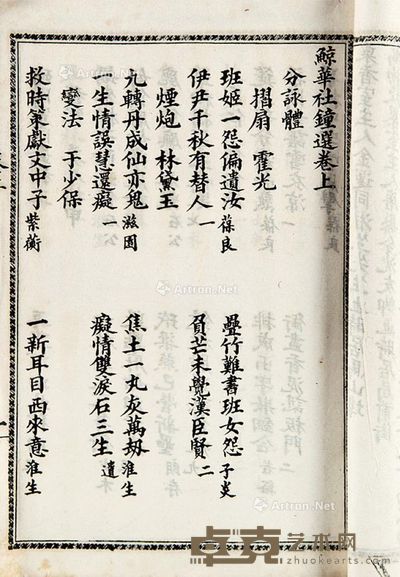 鯨華社鐘選卷上
分詠體
摺扇　霍光
班姬一怨偏遺汝 葆良　疊竹難書班女怨 子炎
伊尹千秋有替人 一　負芒未覺漢臣賢 二
煙炮　林黛玉
九轉丹成仙亦鬼 滋園　焦土一丸灰萬劫 淮生
一生情誤慧還癡 一　癡情雙淚石三生 遺
變法　于少保
救時策獻文中子 紫蘅　一新耳目西來意 淮生
Artron.Net
卓克艺术网
www.zhuokearts.com